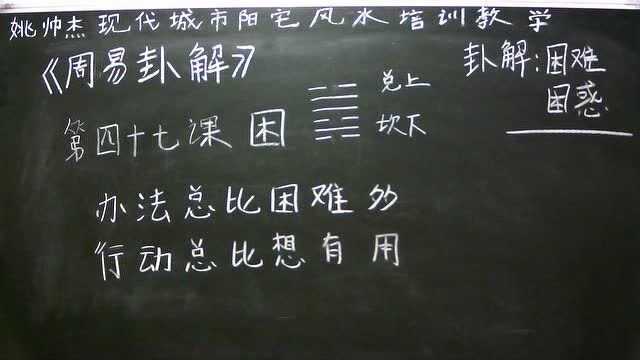 姚帅杰现代城市阳宅风水培训教学
《周易卦解》
卦解:困难
困惑
第四十七课 困
兑上
坎下
办法总比困难多
行动总比想有用